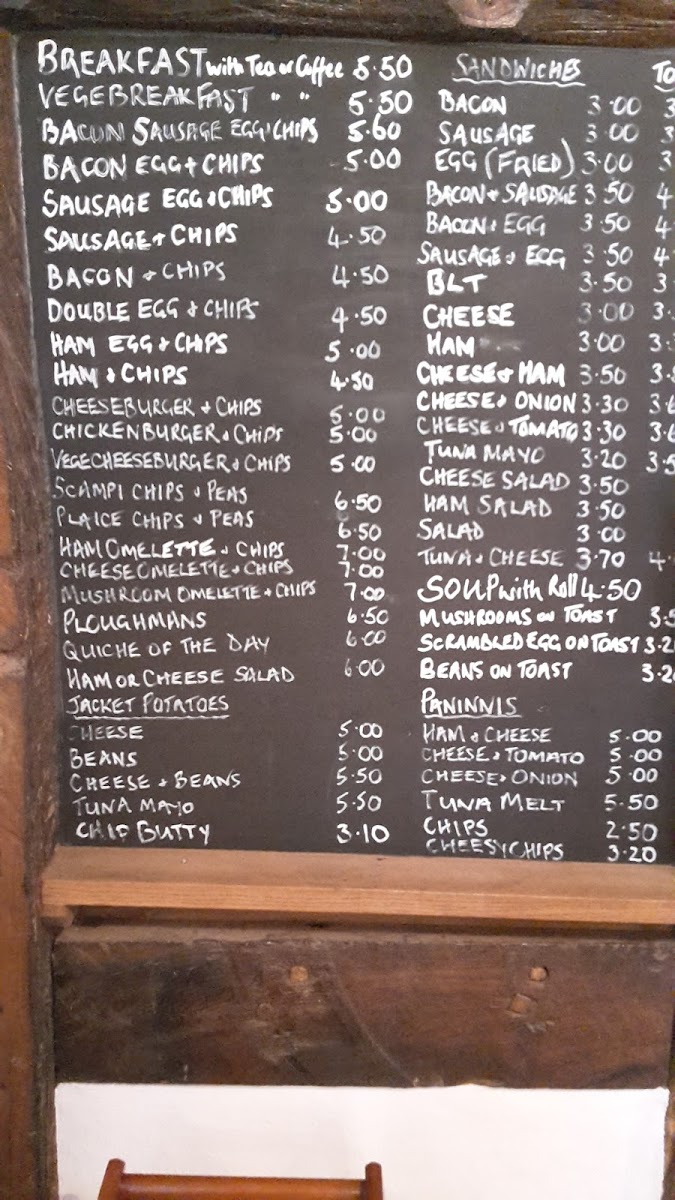 BREAKFAST with Tea or Coffee 5.50
VEGEBREAKFAST " " 5.50
BACON SAUSAGE EGG & CHIPS 5.60
BACON EGG + CHIPS 5.00
SAUSAGE EGG & CHIPS 5.00
SAUSAGE + CHIPS 4.50
BACON & CHIPS 4.50
DOUBLE EGG & CHIPS 4.50
HAM EGG & CHIPS 5.00
HAM & CHIPS 4.50
CHEESEBURGER & CHIPS 5.00
CHICKENBURGER & CHIPS 5.00
VEGECHEESEBURGER & CHIPS 5.00
SCAMPI CHIPS & PEAS 6.50
PLAICE CHIPS & PEAS 6.50
HAM OMELETTE & CHIPS 7.00
CHEESE OMELETTE & CHIPS 7.00
MUSHROOM OMELETTE & CHIPS 7.00
PLOUGHMANS 6.50
QUICHE OF THE DAY 6.00
HAM OR CHEESE SALAD 6.00
JACKET POTATOES
CHEESE 5.00
BEANS 5.00
CHEESE & BEANS 5.50
TUNA MAYO 5.50
CHIP BUTTY 3.10
SANDWICHES TO
BACON 3.00 3
SAUSAGE 3.00 3
EGG (FRIED) 3.00 3
BACON & SAUSAGE 3.50 4
BACON & EGG 3.50 4
SAUSAGE & EGG 3.50 4
BLT 3.50 3
CHEESE 3.00 3
HAM 3.00 3
CHEESE & HAM 3.50 3
CHEESE & ONION 3.30 3
CHEESE & TOMATO 3.30 3
TUNA MAYO 3.20 3.5
CHEESE SALAD 3.50
HAM SALAD 3.50
SALAD 3.00
TUNA & CHEESE 3.70 4
SOUP with Roll 4.50
MUSHROOMS ON TOAST 3.5
SCRAMBLED EGG ON TOAST 3.2
BEANS ON TOAST 3.2
PANINNIS
HAM & CHEESE 5.00
CHEESE & TOMATO 5.00
CHEESE & ONION 5.00
TUNA MELT 5.50
CHIPS 2.50
CHEESY CHIPS 3.20